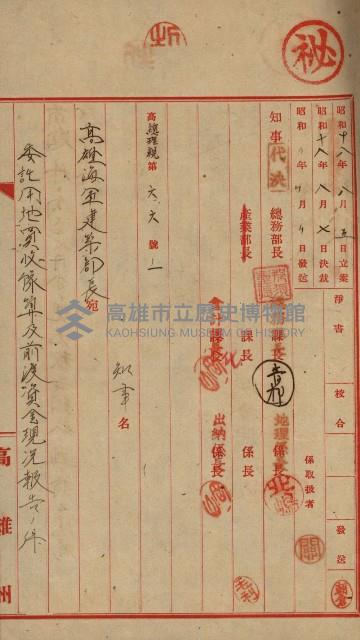 秘
昭和十八年八月五日立案
昭和十八年八月七日決裁
昭和 年 月 日發送
淨書
校合
發送
知事 代決
總務部長
產業部長
課長
課長
地理係長
係長
出納係長
係取扱者
高總理親第六六號ノ一
知事名
高雄海軍建築部長宛
委託用地買收係算及前渡資金現況報告ノ件
高雄州
高雄市立歷史博物館
KAOHSIUNG MUSEUM OF HISTORY